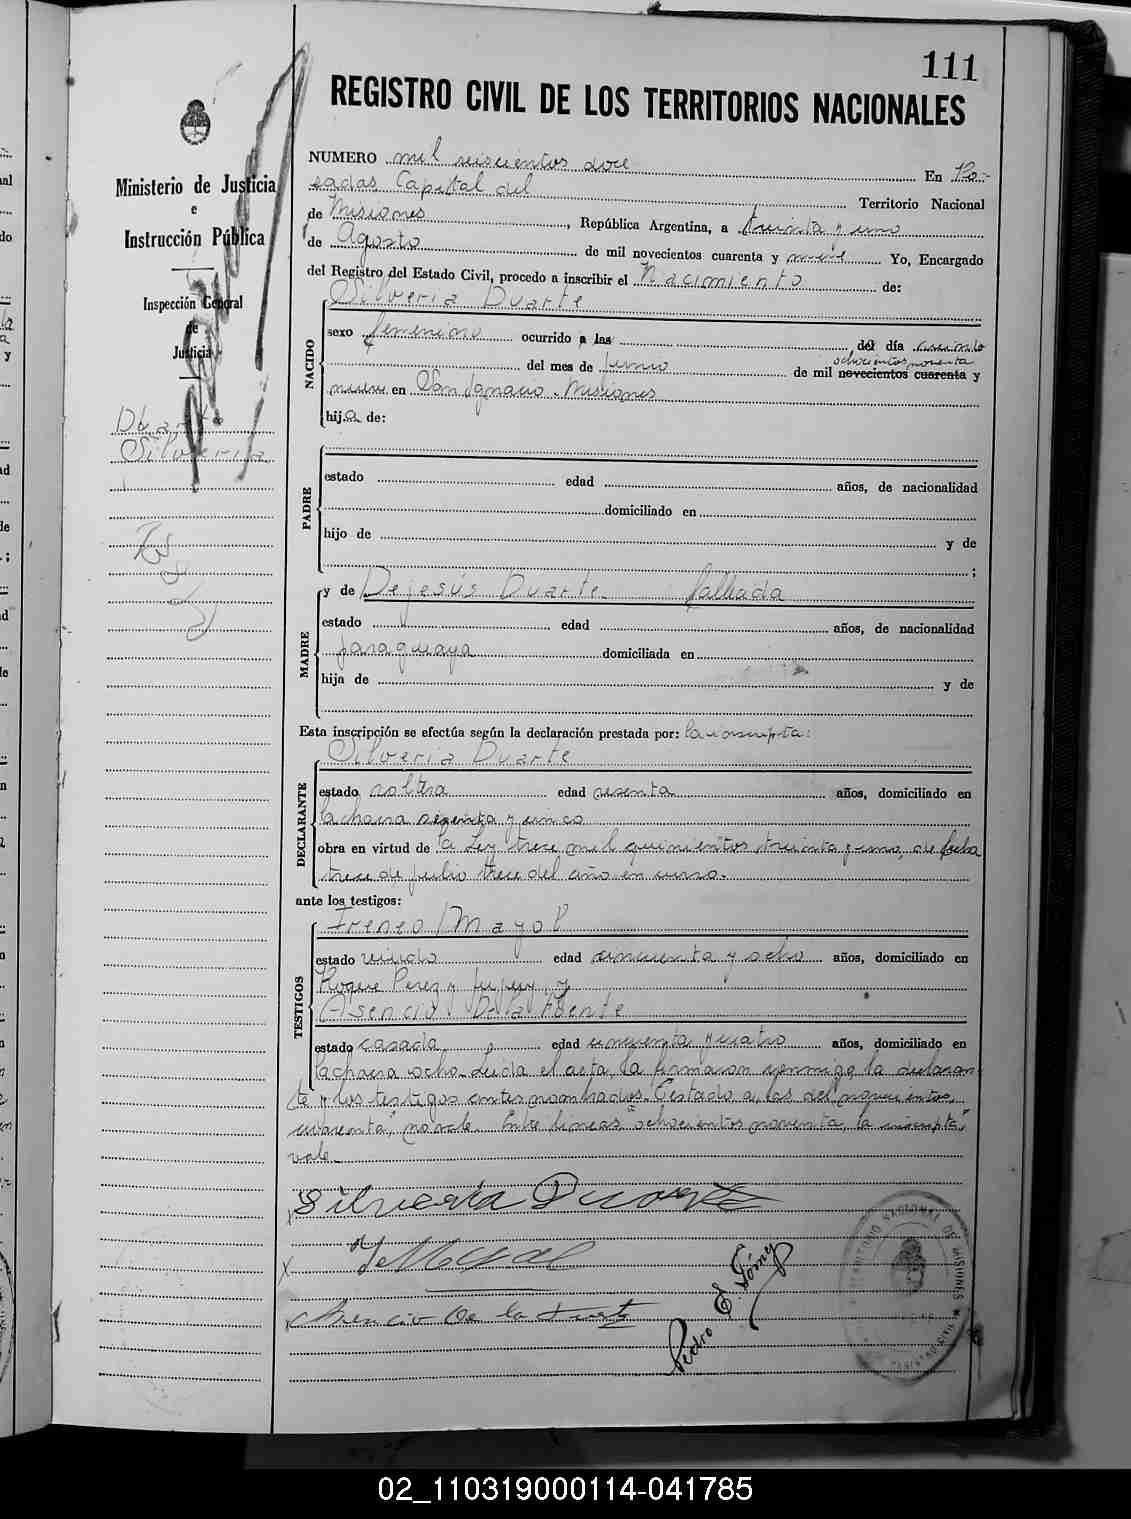 111
REGISTRO CIVIL DE LOS TERRITORIOS NACIONALES
Ministerio de Justicia
e
Instrucción Pública
Inspección General
de
Justicia
Duarte
Silveria
NUMERO mil seiscientos doce En Po-
sadas Capital del Territorio Nacional
de Misiones, República Argentina, a treinta y uno
de Agosto de mil novecientos cuarenta y nueve Yo, Encargado
del Registro del Estado Civil, procedo a inscribir el Nacimiento de:
NACIDO
Silveria Duarte
sexo femenino ocurrido a las del día
ochocientos noventa
del mes de Junio de mil novecientos cuarenta y
nueve en San Ignacio - Misiones
hija de:
PADRE
estado edad años, de nacionalidad
domiciliado en
hijo de y de
;
MADRE
y de Dejesús Duarte fallecida
estado edad años, de nacionalidad
paraguaya domiciliada en
hija de y de
Esta inscripción se efectúa según la declaración prestada por: la inscripta:
DECLARANTE
Silveria Duarte
estado soltera edad sesenta años, domiciliado en
la chacra sesenta y cinco
obra en virtud de la Ley trece mil quinientos treinta y uno, de fecha
trece de julio trece del año en curso.
ante los testigos:
TESTIGOS
Ireneo Mayol
estado viudo edad cincuenta y ocho años, domiciliado en
Roque Perez y Jujuy y
Asencio De la Fuente
estado casada edad cincuenta y cuatro años, domiciliado en
la chacra ocho. Leída el acta, la firmaron conmigo la declaran-
te y los testigos antes nombrados. Testado a, las del novecientos
cuarenta, no vale. Entre líneas "ochocientos noventa, la inscripta"
vale.
Silveria Duarte
Y. Mayol
Asencio De la Fuente
Pedro E. Gómez
TERRITORIO NACIONAL DE MISIONES
REGISTRO CIVIL
02_110319000114-041785